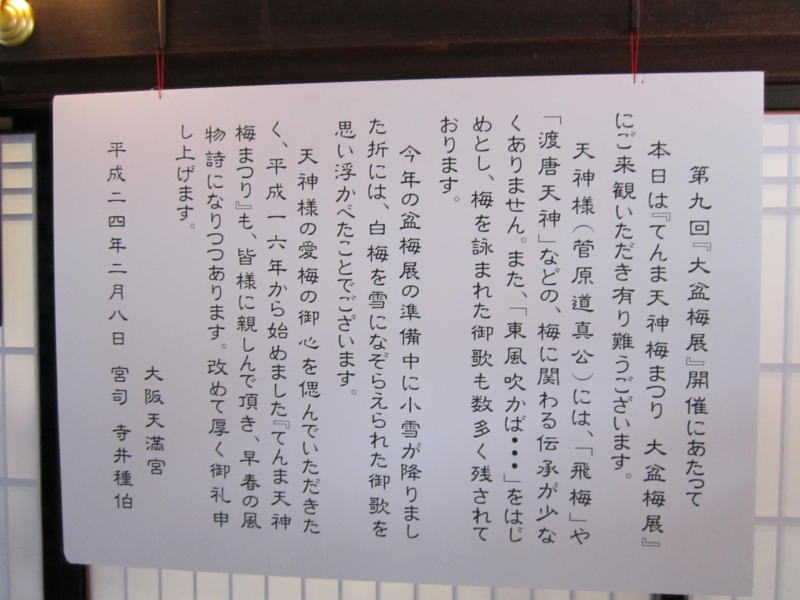 第九回『大盆梅展』開催にあたって
本日は『てんま天神梅まつり 大盆梅展』
にご来観いただき有り難うございます。
天神様(菅原道真公)には、「飛梅」や
「渡唐天神」などの、梅に関わる伝承が少な
くありません。また、「東風吹かば・・・」をはじ
めとし、梅を詠まれた御歌も数多く残されて
おります。
今年の盆梅展の準備中に小雪が降りまし
た折には、白梅を雪になぞらえられた御歌を
思い浮かべたことでございます。
天神様の愛梅の御心を偲んでいただきた
く、平成一六年から始めました『てんま天神
梅まつり』も、皆様に親しんで頂き、早春の風
物詩になりつつあります。改めて厚く御礼申
し上げます。
大阪天満宮
平成二四年二月八日 宮司 寺井種伯